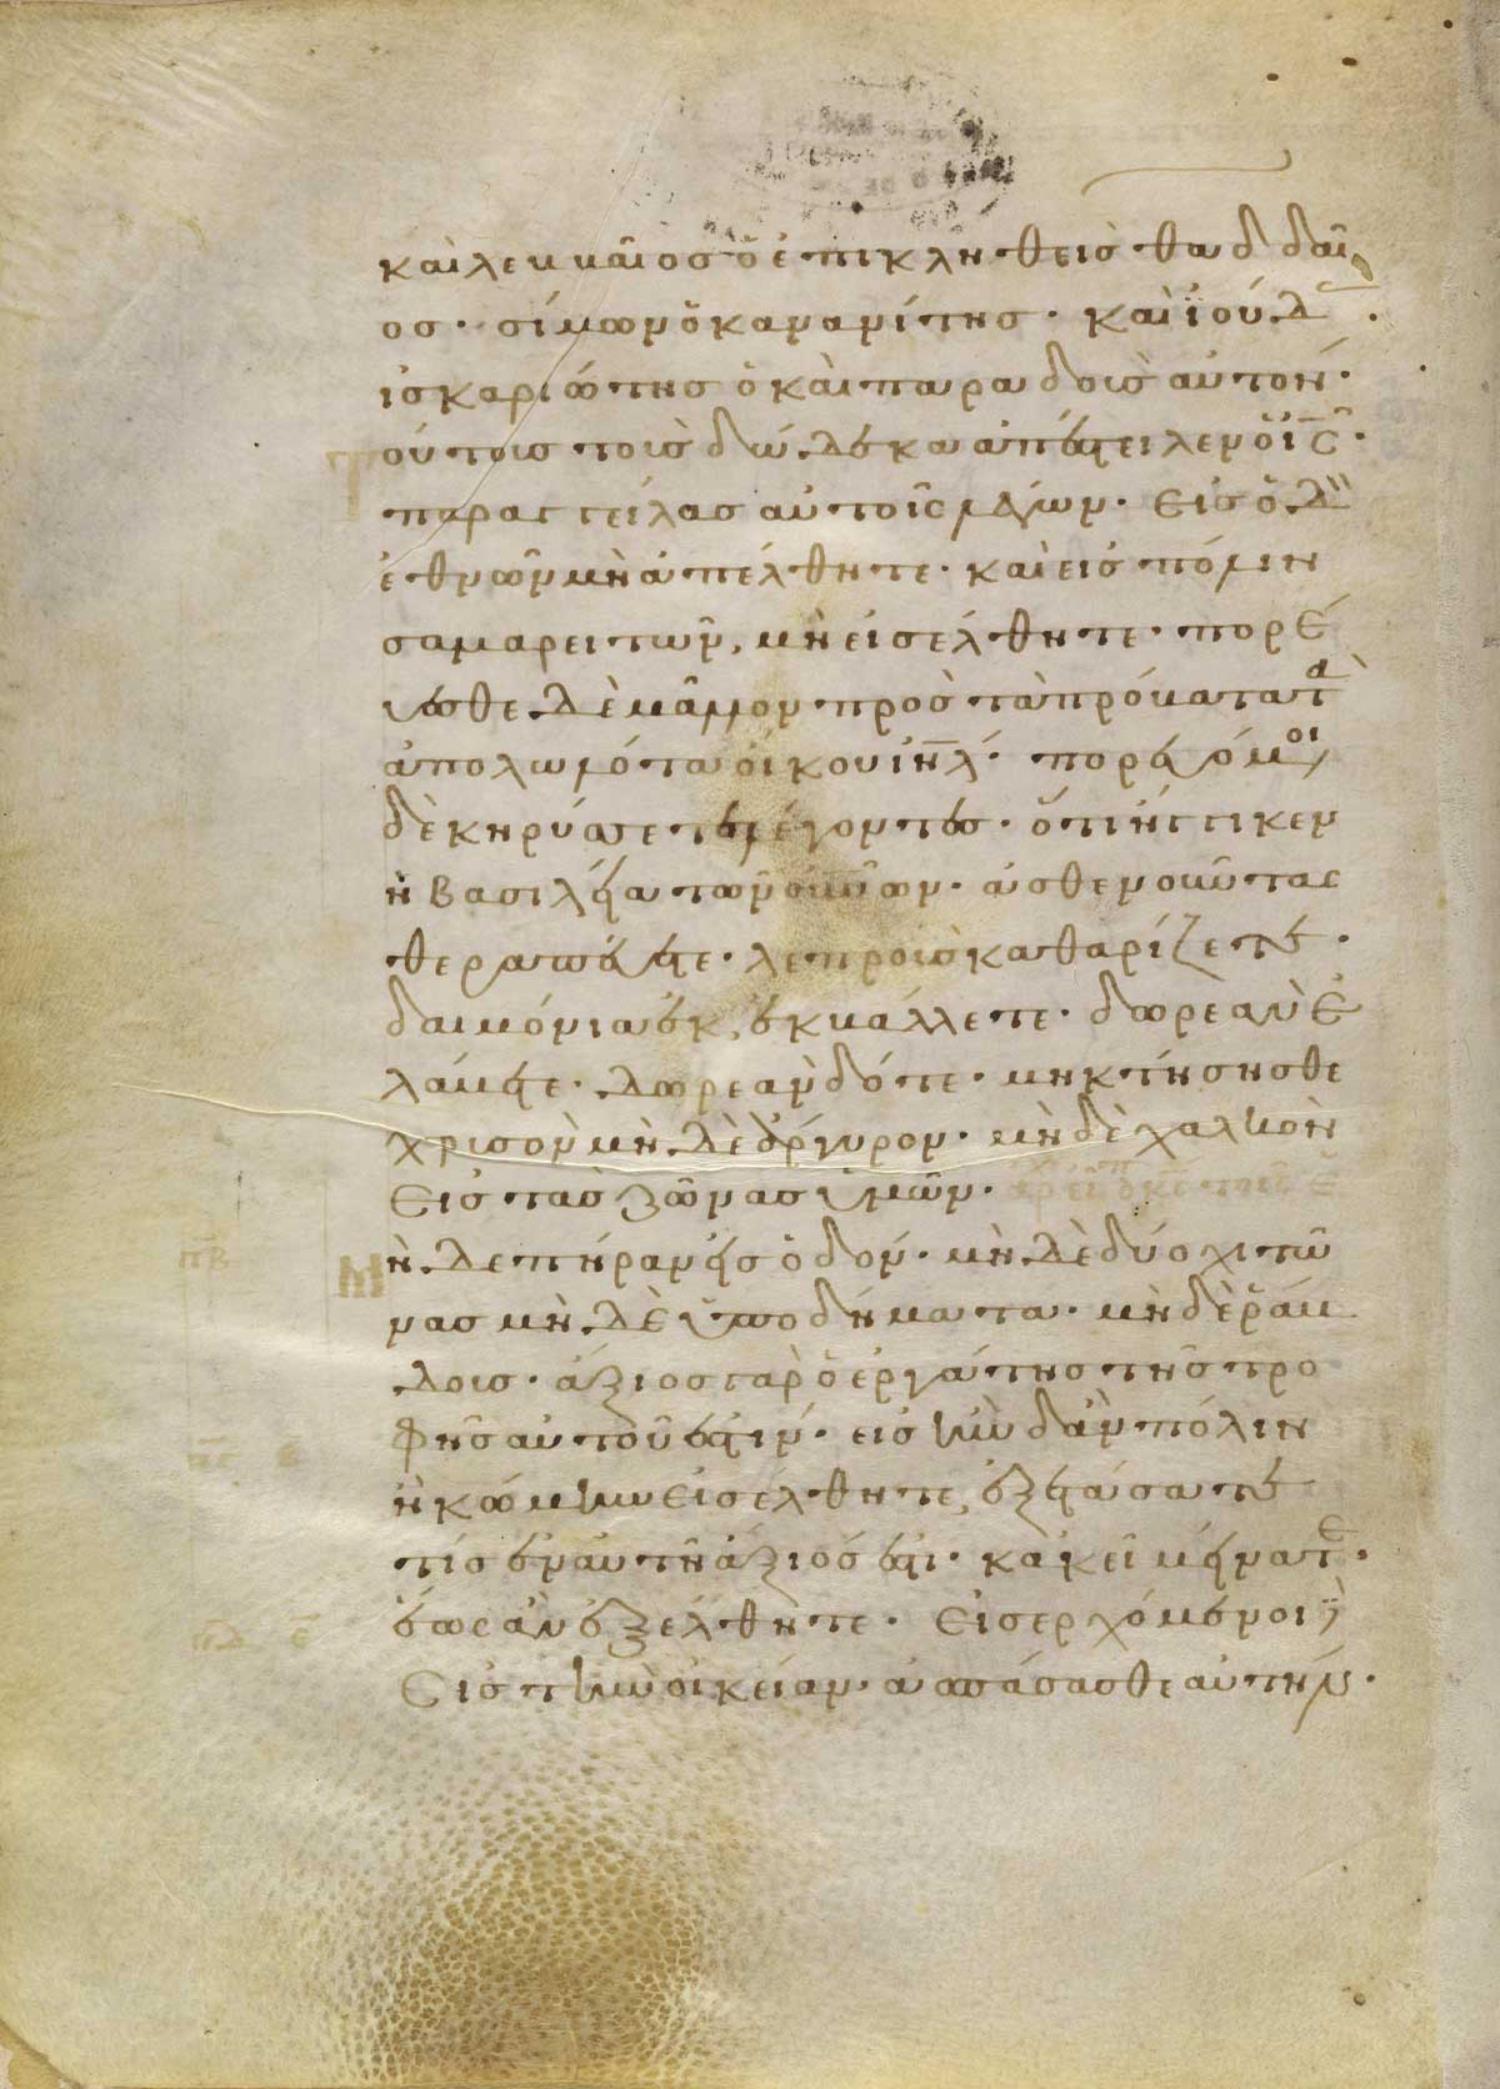 καὶ λευυαῖος ὁ ἐπικληθεὶς θαδδαῖ
ος· σίμων ὁ κανανίτης· καὶ ϊούδ
ἰσκαριώτης ὁ καὶ παραδοὺς αὐτόν·
τούτους τοὺς δώδεκα ἀπέστειλεν ὁ ις̅·
παραγγείλας αὐτοῖς λέγων· Εἰς ὁδ
ἐθνῶν μὴ ἀπέλθητε· καὶ εἰς πόλιν
σαμαρειτῶν, μὴ εἰσέλθητε· πορε
ύεσθε δὲ μᾶλλον πρὸς τὰ πρόβατα τὰ
ἀπολωλότα οἴκου ιηλ̅· πορευόμοι
δὲ κηρύσσετε λέγοντες· ὅτι ἤγγικεν
ἡ βασιλεία τῶν οὐνῶν· ἀσθενοῦντας
θεραπεύετε· λεπροὺς καθαρίζετε·
δαιμόνια ἐκ, ἐκβάλλετε· δωρεὰν ἐ
λάβετε· δωρεὰν δότε· μὴ κτήσησθε
χρυσὸν μὴ δὲ ἄργυρον· μὴ δὲ χαλκὸν
Εἰς τὰς ζώνας ὑμῶν·
πβ Μὴ δὲ πήραν εἰς ὁδόν· μὴ δὲ δύο χιτῶ
νας μὴ δὲ ὑποδήματα· μὴ δὲ ῥάβ
δους· ἄξιος γὰρ ὁ ἐργάτης τῆς τρο
φῆς αὐτοῦ ἐστίν· εἰς ἣν δ' ἂν πόλιν
ἢ κώμην εἰσέλθητε, ἐξετάσατε
τίς ἐν αὐτῇ ἄξιός ἐστι· κακεῖ μείνατε·
ἕως ἂν ἐξέλθητε· Εἰσερχόμενοι
Εἰς τὴν οἰκείαν· ἀσπάσασθε αὐτήν·